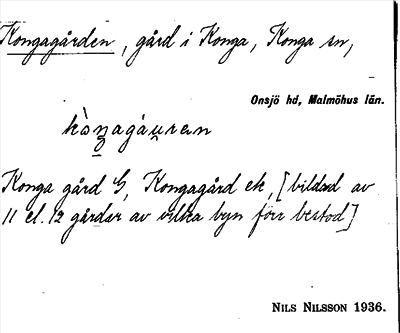 Kongagården, gård i Konga, Konga sn,
Onsjö hd, Malmöhus län.
kòn̲agáu̲ran
Konga gård G, Kongagård ek, [bildad av
11 el. 12 gårdar av vilka byn förr bestod]
NILS NILSSON 1936.